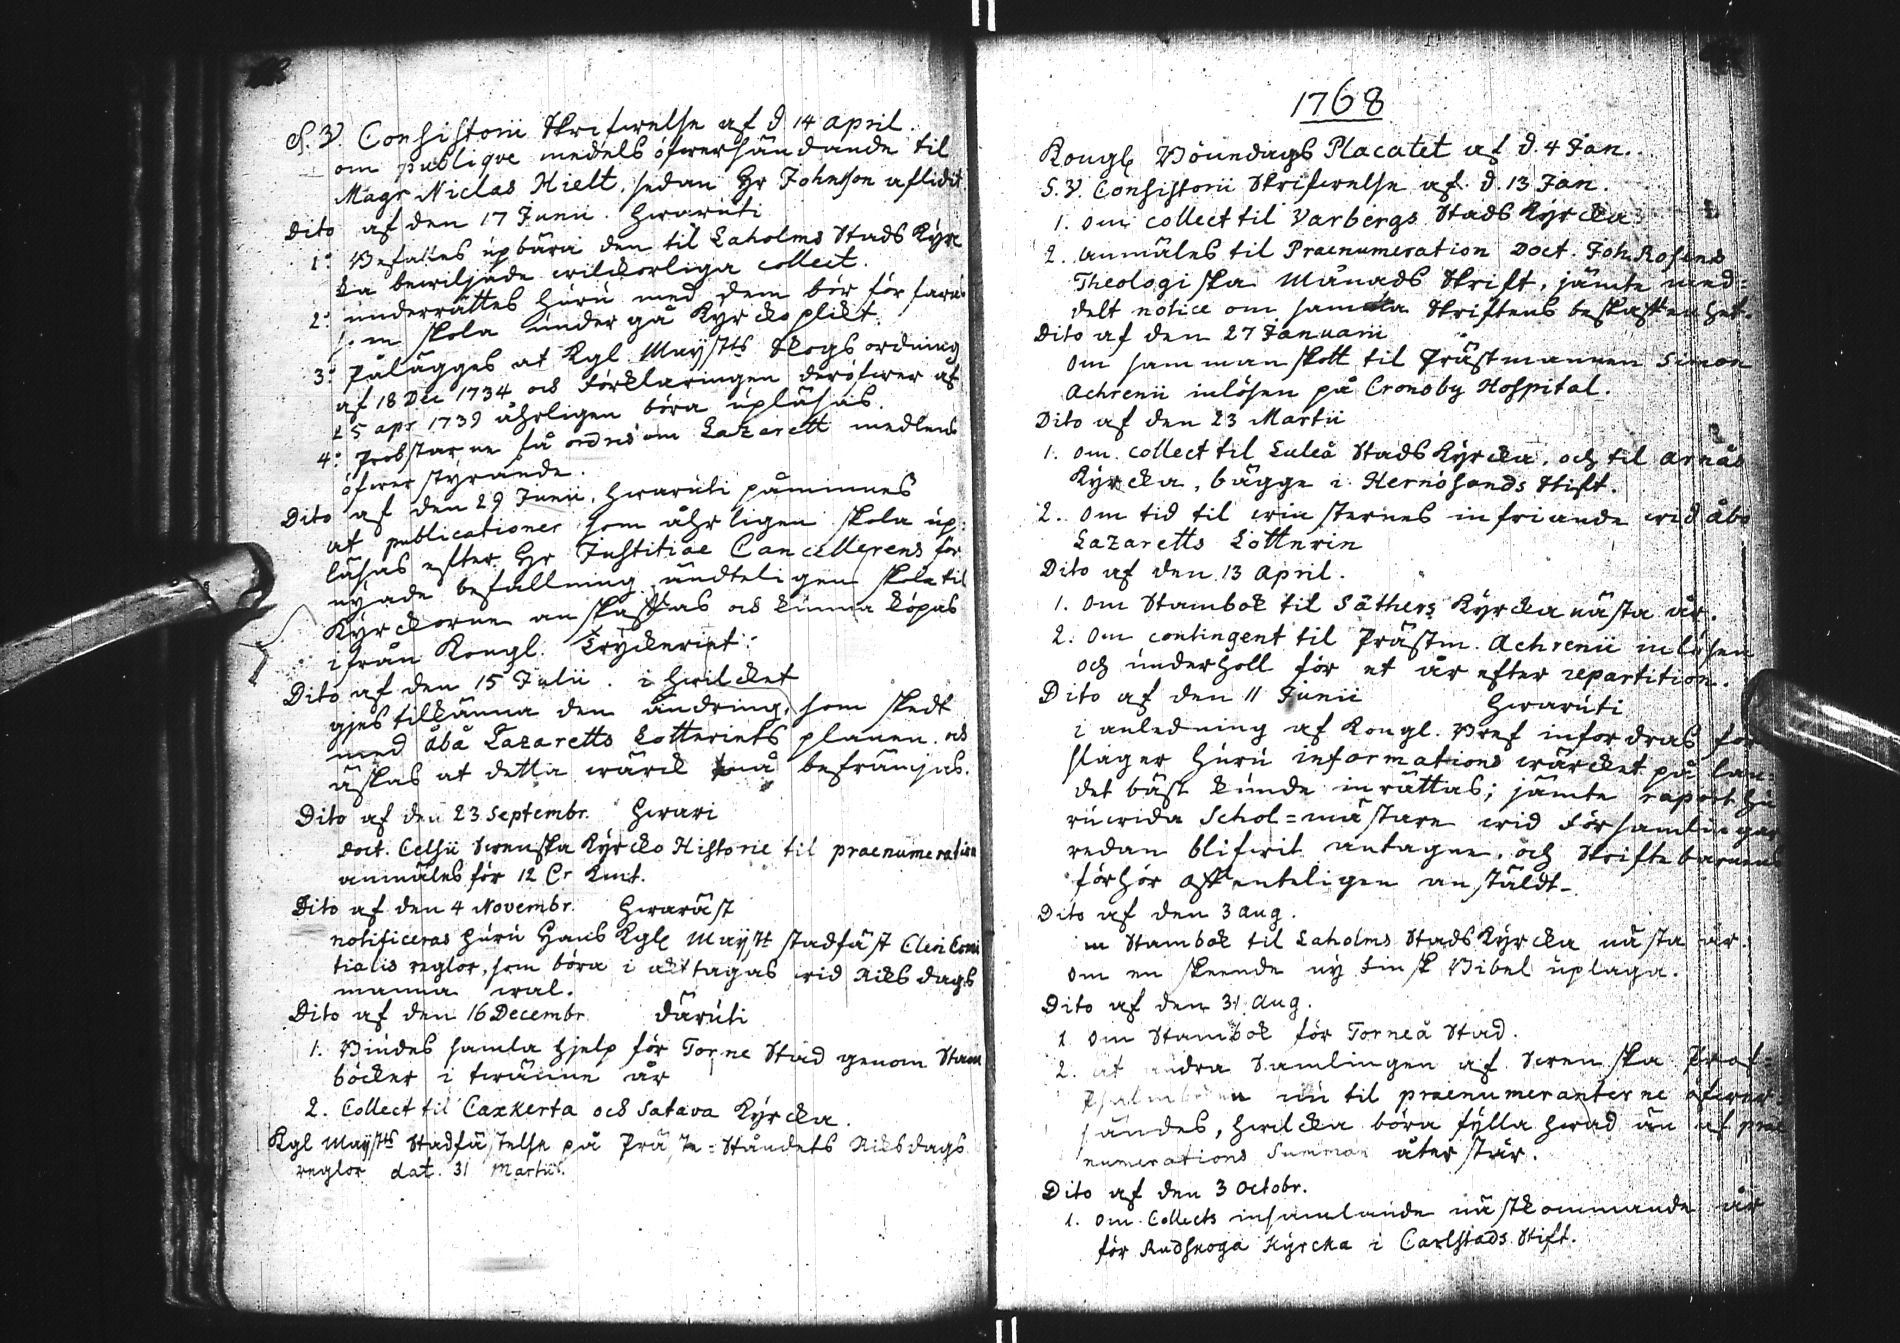 S. V. Consistorii Skrifwelse af d 14 april.
om publique medels öfwersändande til
Magr Niclas Hielt, sedan Hr Johnson aflidit
Dito af den 17 Junii. Hwaruti
1:o Befalles upbära den til Laholms Stads Kyr
ka bewiljade wilckorliga collect.
2:o underrättes huru med dem bör förfaras
som skola undergå Kyrckoplikt.
3:o Pålägges at Kgl Maysts Skogsordning
af 18 Dec 1734 och Förklaringen deröfwer af
25 apr 1739 åhrligen böra upläsas.
4:o Probstarne få ordres om Lazarett medlens
öfwerstyrande.
Dito af den 29 Junii, Hwaruti påminnes
at publicationer som åhrligen skola up:
läsas efter Hr Justitiae Cancellerens för
nyade befallning ändteligen skola til
Kyrckorne anskaffas och kunna köpas
ifrån Kongl. Tryckeriet.
Dito af den 15 Julii. i hwilcket
gjes tilkänna den ändring, som skedt
med åbå Lazaretts Lotteriets planen och
äskas at detta wärck må befrämjas.
Dito af den 23 Septembr. Hwari
doct. Celsii Swenska Kyrcko Historie til praenumeration
anmäles för 12 Cr Kmt.
Dito af den 4 Novembr. Hwaräst
notificeras huru Hans Kgl Mayst stadfäst Cleri Comi
tialis reglor, som böra i akttagas wid Riksdags
manna wal.
Dito af den 16 Decembr däruti
1. Biudes samla hjelp för Torne Stad genom Stam
böcker i twänne år
2. Collect til Caxkerta och Satava Kyrcka.
Kgl Maysts Stadfästelse på Präste=Ståndets Riksdags
reglor dat. 31 Martii.
1768
Kongl Böndags Placatet af d. 4 Jan.
S. V. Consistorii Skrifwelse af d. 13 Jan.
1. om collect til Varbergs Stads Kyrcka
2. anmäles til Praenumeration Doct. Joh. Rosens
Theologiska Månads Skrift, jämte med:
delt notice om samma Skriftens beskaffenhet.
Dito af den 27 Januarii
om sammanskott til Prästmannen Simon
Achrenii inlösen på Cronsby Hospital.
Dito af den 23 Martii
1. om collect til Luleå Stads Kyrcka, och til arnäs
Kyrcka, bägge i Hernösands Stift.
2. om tid til winsternes infriande wid åbo
Lazaretts Lotterin
Dito af den 13 April.
1. om Stambok til Säthers Kyrcka nästa år.
2. Om contingent til Prästm. Achrenii inlösen
och underholl för et år efter repartition.
Dito af den 11 Junii Hwaruti
i anledning af Kongl. Bref infordras för
slager huru informations wärcket på lan:
det bäst kunde inrättas; jämte raport hu
ruwida Schol=mästare wid församlingar
redan blifwit antagne, och Skriftebarnens
förhör offenteligen anstäldt.
Dito af den 3 aug.
m Stambok til Laholms Stads Kyrcka nästa år.
om en skeende ny Finsk Bibel uplaga.
Dito af den 31 aug.
1. om Stambok för Torneå Stad.
2. at andra Samlingen af Swenska Prof=
Psalmboken nu til praenumeranterne öfwer:
sändes, hwilcka böra fylla hwad än af prae
numerations Summan återstår.
Dito af den 3 Octobr.
1. om Collects insamlande nästkommande år
för Rudskoga Kyrcka i Carlstads Stift.